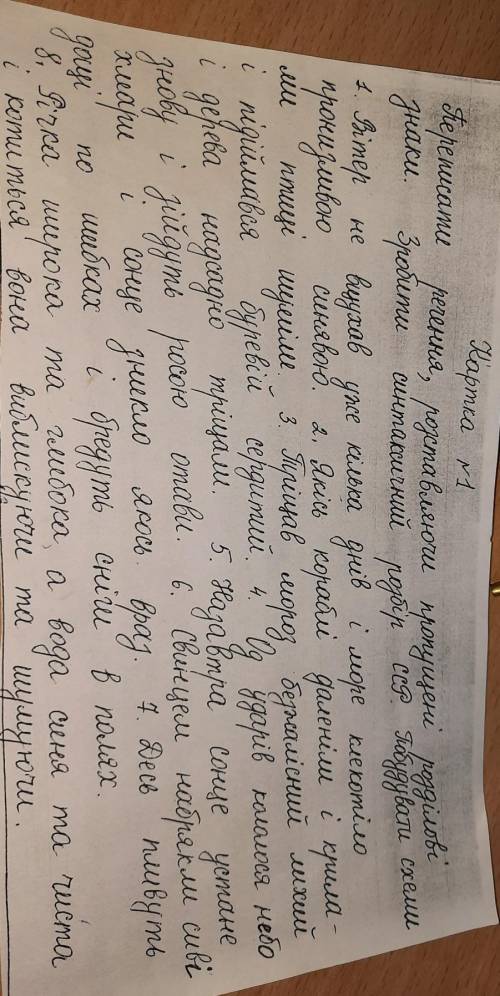 Картка №1
Переписати речення, розставляючи пропущені розділові
знаки. Зробити синтаксичний розбір ССР. Побудувати схеми
1. Вітер не вщухав уже кілька днів і море клекотіло
пронизливою синявою. 2. Якісь кораблі даленіли і крила-
ми птиці шуміли 3. Тріщав мороз безжалісний лихий
і підіймався буревій сердитий. 4. Од ударів кололося небо
і дерева надсадно тріщали. 5. Назавтра сонце устане
знову і зійдуть росою отави. 6. Свинцем набрякли сиві
хмари і сонце зникло якось враз. 7. Десь пливуть
дощі по шибках і бредуть сніги в полях.
8. Річка широка та глибока, а вода синя та чиста
і котиться вона виблискуючи та шумуючи.